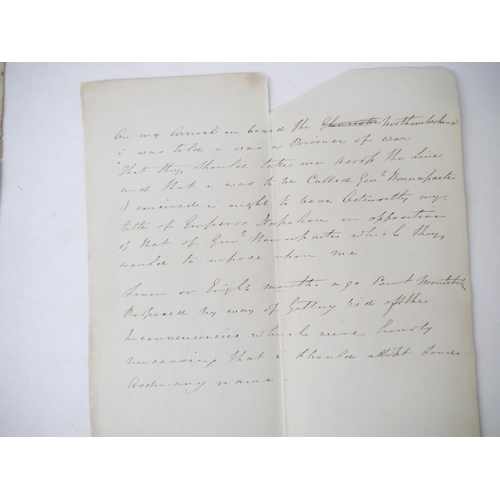 On my Arrival on board the Northumberland
i was told i was a Prisoner of war
That they Should take me across the Line
and that i was to be Called Gen.l Bonaparte
I conceived i ought to have ostensibly my
title of Emperor Napoleon in opposition
of that of Gen.l Bonaparte which they
would to impose upon me
Seven or Eight months ago Count Montholon
Proposed by way of Getting rid of the
inconveniencies which were hourly
increasing that i Should adopt Some
Ordinary name -